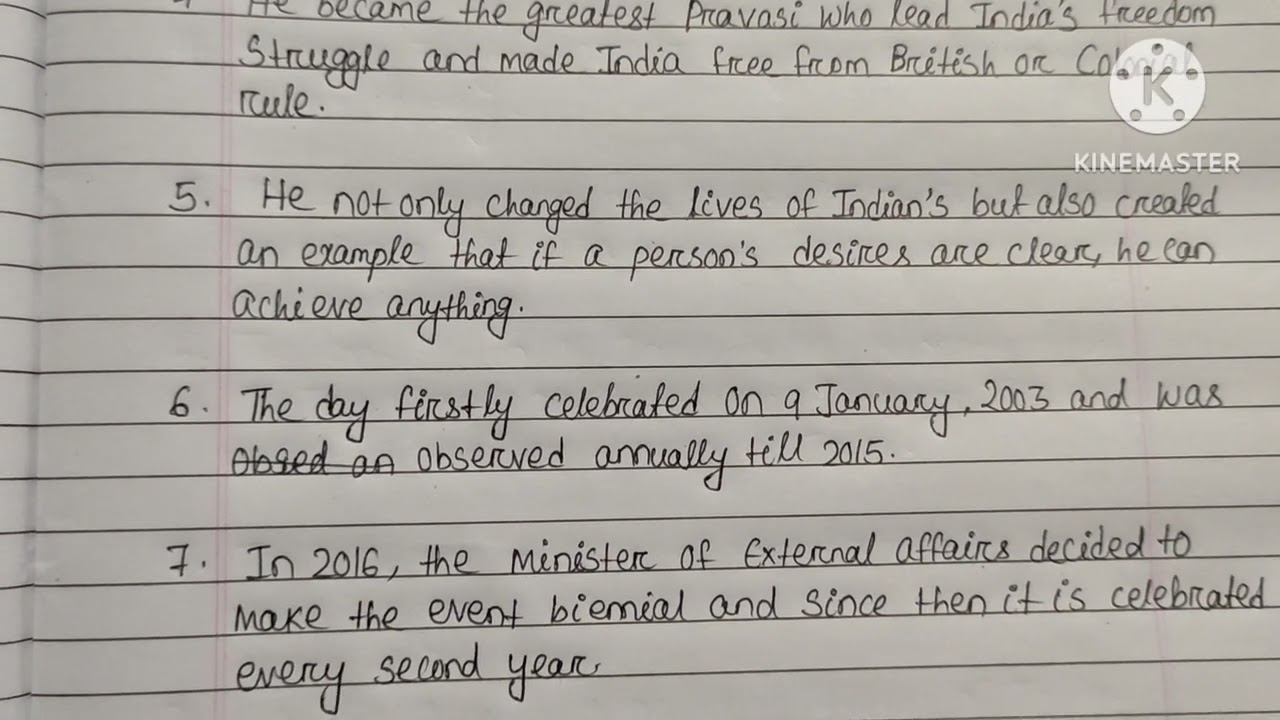 He became the greatest Pravasi who lead India's freedom
Struggle and made India free from British or Colonial
rule.
KINEMASTER
5. He not only changed the lives of Indian's but also created
an example that if a person's desires are clear, he can
achieve anything.
6. The day firstly celebrated on 9 January, 2003 and was
obsed an observed annually till 2015.
7. In 2016, the Minister of External affairs decided to
make the event biennial and since then it is celebrated
every second year.